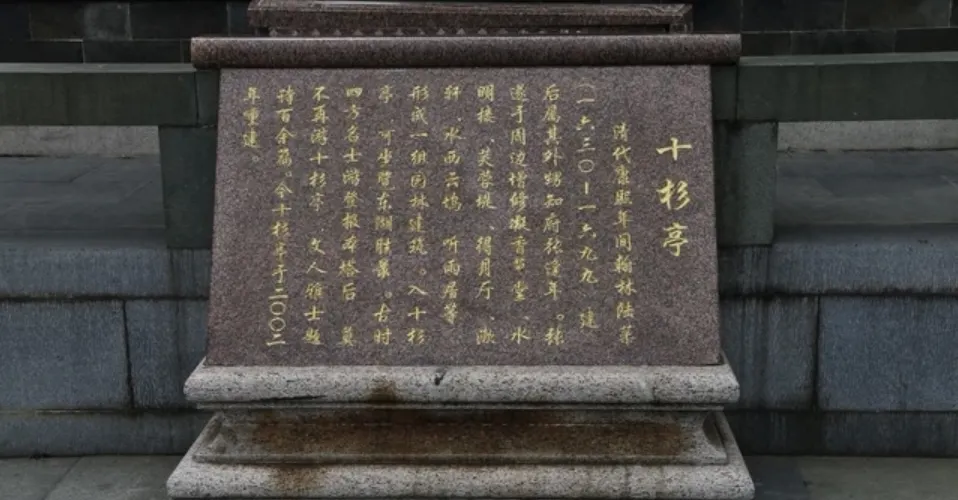 十杉亭
清代康熙年间翰林陆棻
(一六三〇—一六九九)建
后属其外甥知府张逢年。张
遂于周边增修凝香书堂、水
明楼、芙蓉堤、得月厅、漱
轩、水西云坞、听雨居等
形成一组园林建筑。入十杉
亭,可坐览东湖胜景。古时
四方名士游登报本塔后,莫
不再游十杉亭,文人雅士题
诗百余篇。今十杉亭于二〇〇二
年重建。